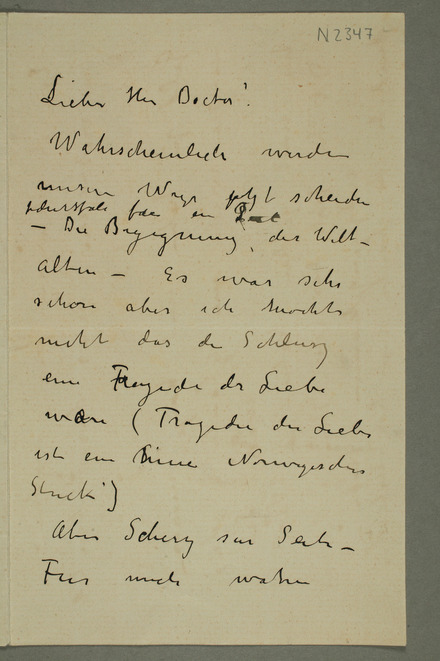 N2347
Lieber Herr Doctor!
Wahrscheinlich werden
unsere Wege jetzt scheiden
— Die Begegnung der Welt-
alten — Es war sehr
schön aber ich möchte
nicht das der Schlusz
eine Tragedie der Liebe
wäre (Tragedie der Liebe
ist ein Norwegisches
Stück!)
Aber Scherz zur Seite —
Fur mich waren